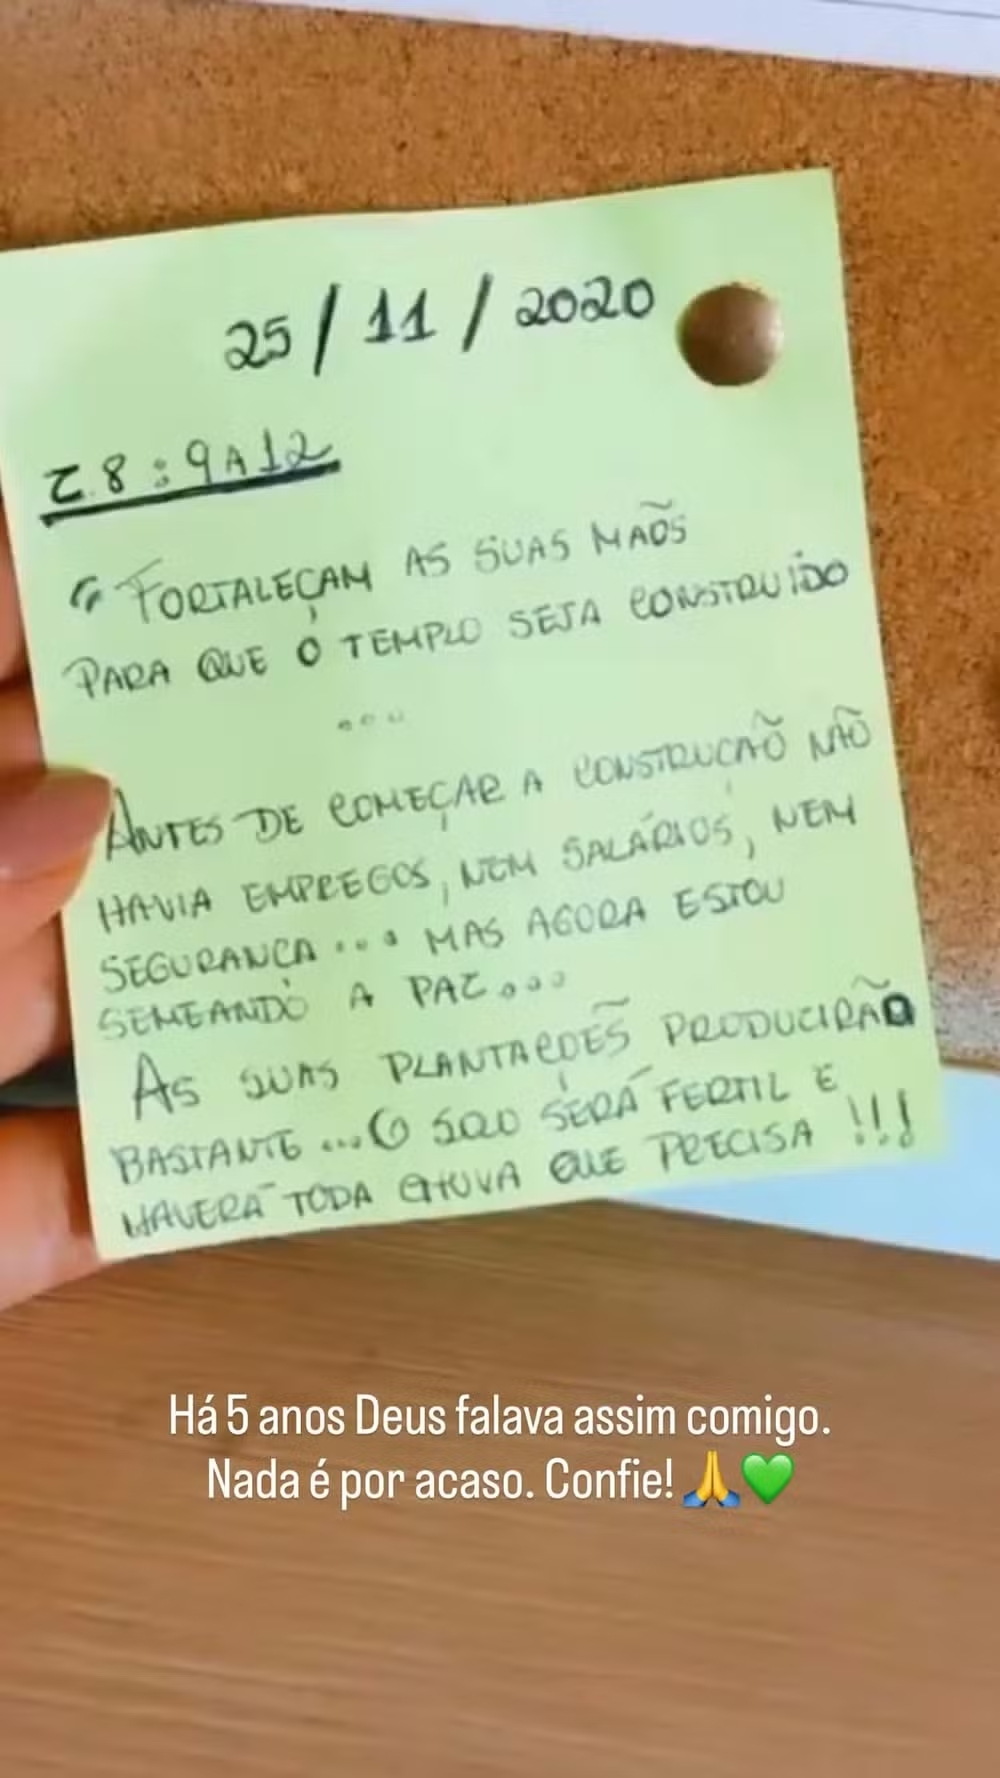 25/11/2020
Z.8:9 A 12
“FORTALEÇAM AS SUAS MÃOS
PARA QUE O TEMPLO SEJA CONSTRUIDO
...
ANTES DE COMEÇAR A CONSTRUÇÃO NÃO
HAVIA EMPREGOS, NEM SALÁRIOS, NEM
SEGURANÇA... MAS AGORA ESTOU
SEMEANDO A PAZ...
AS SUAS PLANTAÇÕES PRODUCIRÃO
BASTANTE... O SOLO SERÁ FERTIL E
HAVERÁ TODA CHUVA QUE PRECISA!!!
Há 5 anos Deus falava assim comigo.
Nada é por acaso. Confie! 🙏💚